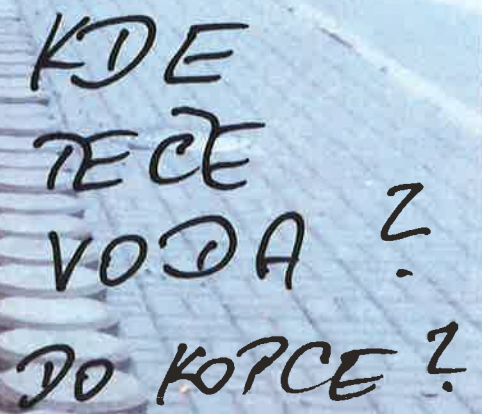 KDE
TEČE
VODA ?
DO KOPCE ?